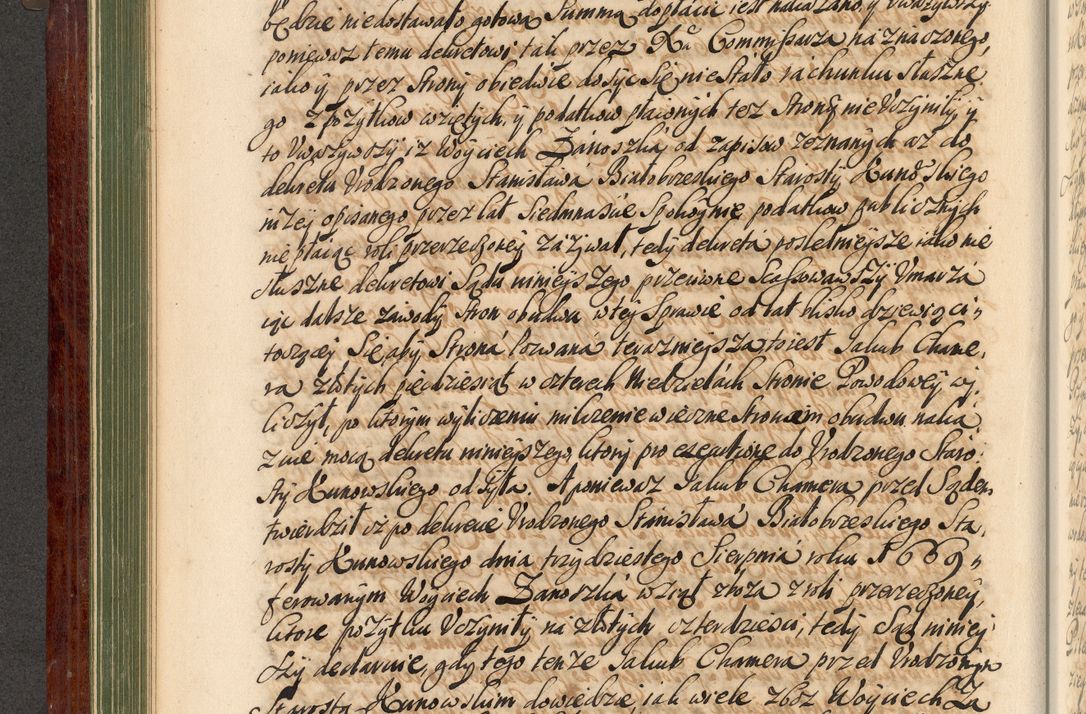 będzie niedostawało gotowa Summa dopłacic iest nakazano, y Uwazywszy
poniewaz temu dekretowi tak przez Xa Commyssarza naznaczonego,
iako y przez Strony obiedwie dosyc się nie Stało rachunku słuszne
go z pozytkow wziętych, y podatkow płaconych tez Strony nie Uczyniły, y
to Uwazywszy iz Woyciech Zanoszka od zapisow zeznanych az do
dekretu Urodzonego Stanisława Białobrzeskiego Starosty Kunowskiego
nizey opisanego przez lat Siedmnascie Spokoynie podatkow publicznych
nie płacąc roli przerzeczoney zazywał, tedy dekreta poslednieysze iako nie
słuszne dekretowi Sądu ninieyszego przeciwne Scassowawszy Umarza
iąc dalsze zawody Stron obudwu w tey Sprawie od lat blisko dziewięci
toczącey Się aby Strona Pozwana teraznieysza to iest Jakub Chame,
ra złotych pięcdziesiąt w czterech Niedzielach Stronie Powodowey wy
liczył, po ktorym wyliczeniu milczenie wieczne Stronom obudwu naka
zuie mocą dekretu ninieyszego, ktory pro exequutione do Urodzonego Staro
sty Kunowskiego odsyła. A poniewaz Jakub Chamera przed Sądem
twierdził iz po dekrecie Urodzonego Stanisława Białobrzeskiego Sta,
rosty Kunowskiego dnia trzydziestego Sierpnia roku 1669
ferowanym Woyciech Zanoszka wziął zboza z roli przerzeczoney,
ktore pozytku Uczyniły na złotych czterdziesci, tedy Sąd niniey
szy declaruie, gdy tego tenze Jakub Chamera przed Urodzonym
Starostą Kunowskim dowiedzie iak wiele zboz Woyciech Za